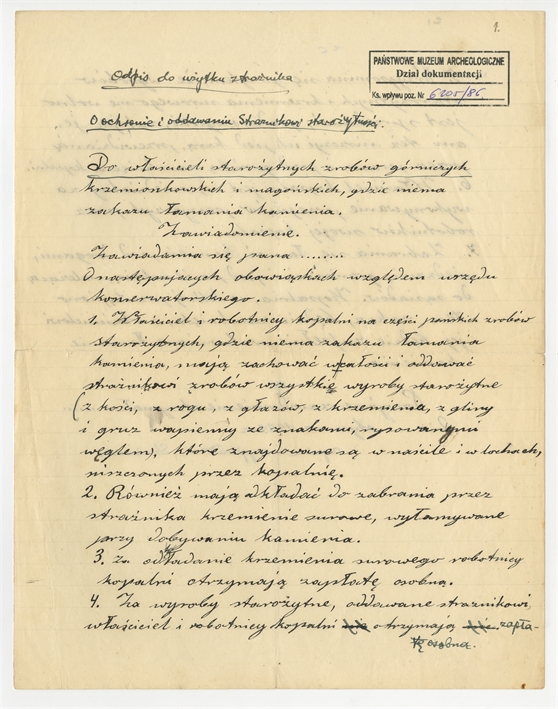 1.
PAŃSTWOWE MUZEUM ARCHEOLOGICZNE
Dział dokumentacji
Ks. wpływu poz. Nr 6205/86
Odpis do użytku strażnika
O ochronie i oddawaniu Strażnikowi starożytności.
Do właścicieli starożytnych zrobów górniczych
krzemionkowskich i magońskich, gdzie niema
zakazu łamania kamienia.
Zawiadomienie.
Zawiadamia się pana ........
O następujących obowiązkach względem urzędu
konserwatorskiego.
1. Właściciel i robotnicy kopalni na części pańskich zrobów
starożytnych, gdzie niema zakazu łamania
kamienia, mają zachować w całości i oddawać
strażnikowi zrobów wszystkie wyroby starożytne
(z kości, z rogu, z głazów, z krzemienia, z gliny
i gruz wapienny ze znakami, rysowanymi
węglem), które znajdowane są w naściele i w lochach,
niszczonych przez kopalnię.
2. Również mają odkładać do zabrania przez
strażnika krzemienie surowe, wyłamywane
przy dobywaniu kamienia.
3. Za odkładanie krzemienia surowego robotnicy
kopalni otrzymają zapłatę osobną.
4. Za wyroby starożytne, oddawane strażnikowi,
właściciel i robotnicy kopalni otrzymają zapła-
tę osobną.